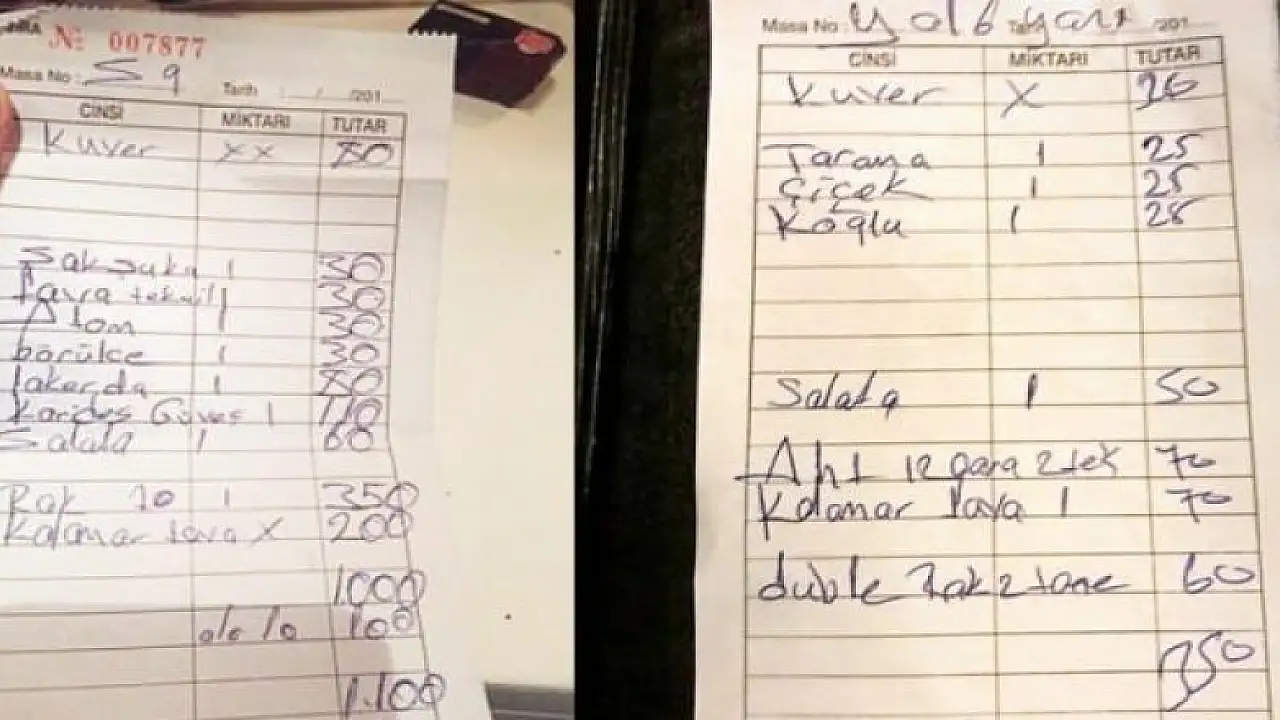 № 007877
Masa No : S 9 Tarih : / /201
CİNSİ MİKTARI TUTAR
Kuver xx 80
Şakşuka 1 30
Tava tekmil 1 30
Atom 1 30
börülce 1 30
lakerda 1 80
Karides Güveç 1 110
Salata 1 60
Rak 70 1 350
Kalamar tava x 200
1.000
% 10 100
1.100
Masa No : yol 6 yanı /201
CİNSİ MİKTARI TUTAR
Kuver x 26
Tarama 1 25
Çiçek 1 25
Köğlu 1 28
Salata 1 50
Aht 12 para 2 tek 70
Kalamar tava 1 70
duble Rak 2 tane 60
350